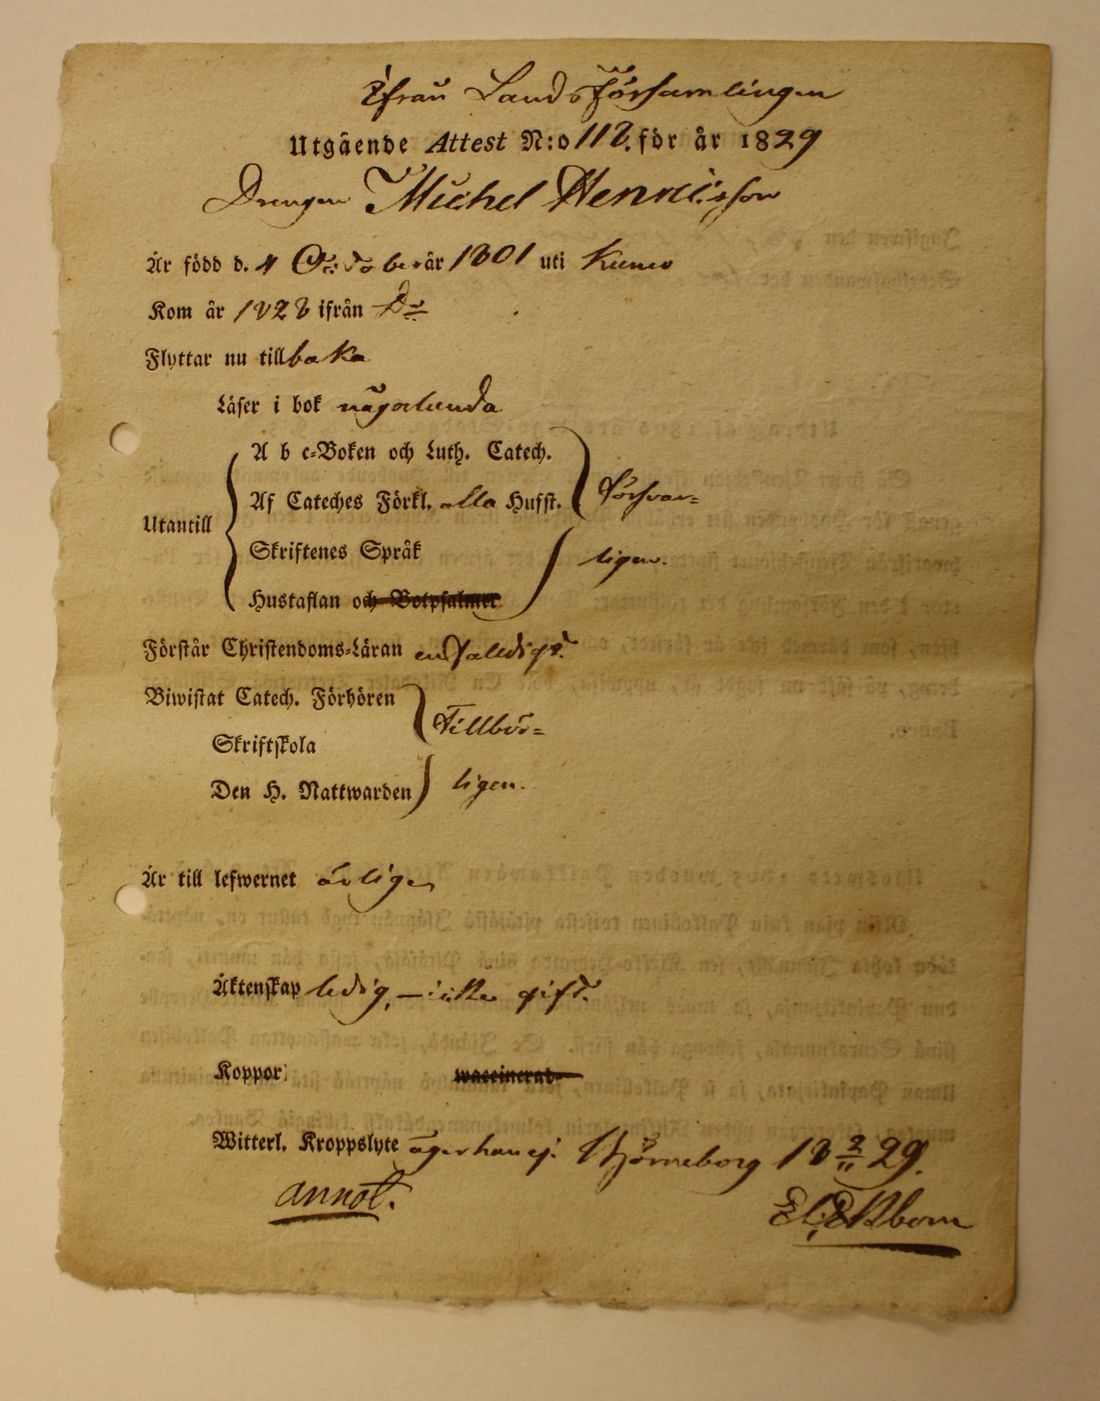 ifrån Landsförsamlingen
Utgående Attest N:o 118. för år 1829
Drengen Michel Henricsson
Är född d. 4 October år 1801 uti Kumo
Kom år 1828 ifrån Do
Flyttar nu tillbaka
Läser i bok någorlunda
A b c-Boken och Luth. Catech.
Af Cateches Förkl. alla Hufst. försvar=
Utantill
Skriftenes Språk ligen.
Hustaflan och Botpsalmer
Förstår Christendoms-Läran enfaldigt.
Biwistat Catech. Förhören
Skriftskola Tillbör=
Den H. Nattwarden ligen.
Är till lefwernet ärlig
Äktenskap ledig, – icke gift.
Koppor: vaccinerad
Witterl. Kroppslyte äger han ej. Björneborg 18 2/11 29.
annot. Ekbom